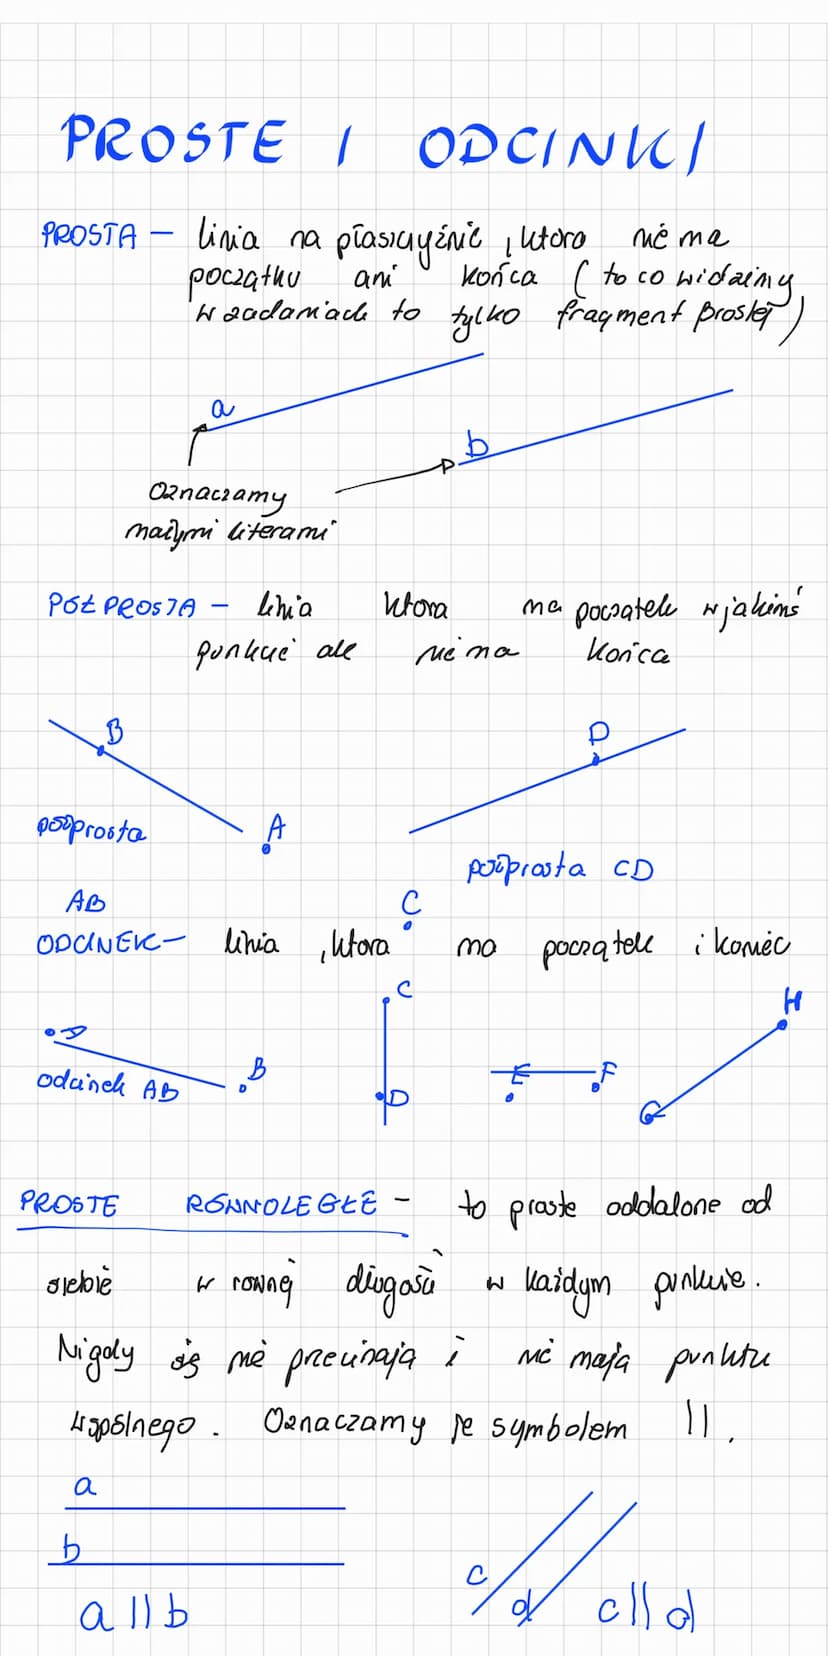 PROSTE I ODCINKI
PROSTA – linia na płaszczyźnie, która nie ma
początku ani końca (to co widzimy
w zadaniach to tylko fragment prostej)
a
b
Oznaczamy
małymi literami
PÓŁPROSTA – linia która ma początek w jakimś
punkcie ale nie ma końca
B
D
półprosta
A
półprosta CD
AB
C
ODCINEK – linia, która ma początek i koniec
C
H
A
B
odcinek AB
D
E
F
G
PROSTE RÓWNOLEGŁE – to proste oddalone od
siebie w równej długości w każdym punkcie.
Nigdy się nie przecinają i nie mają punktu
wspólnego. Oznaczamy je symbolem ||.
a
b
c
d
a || b
c || d